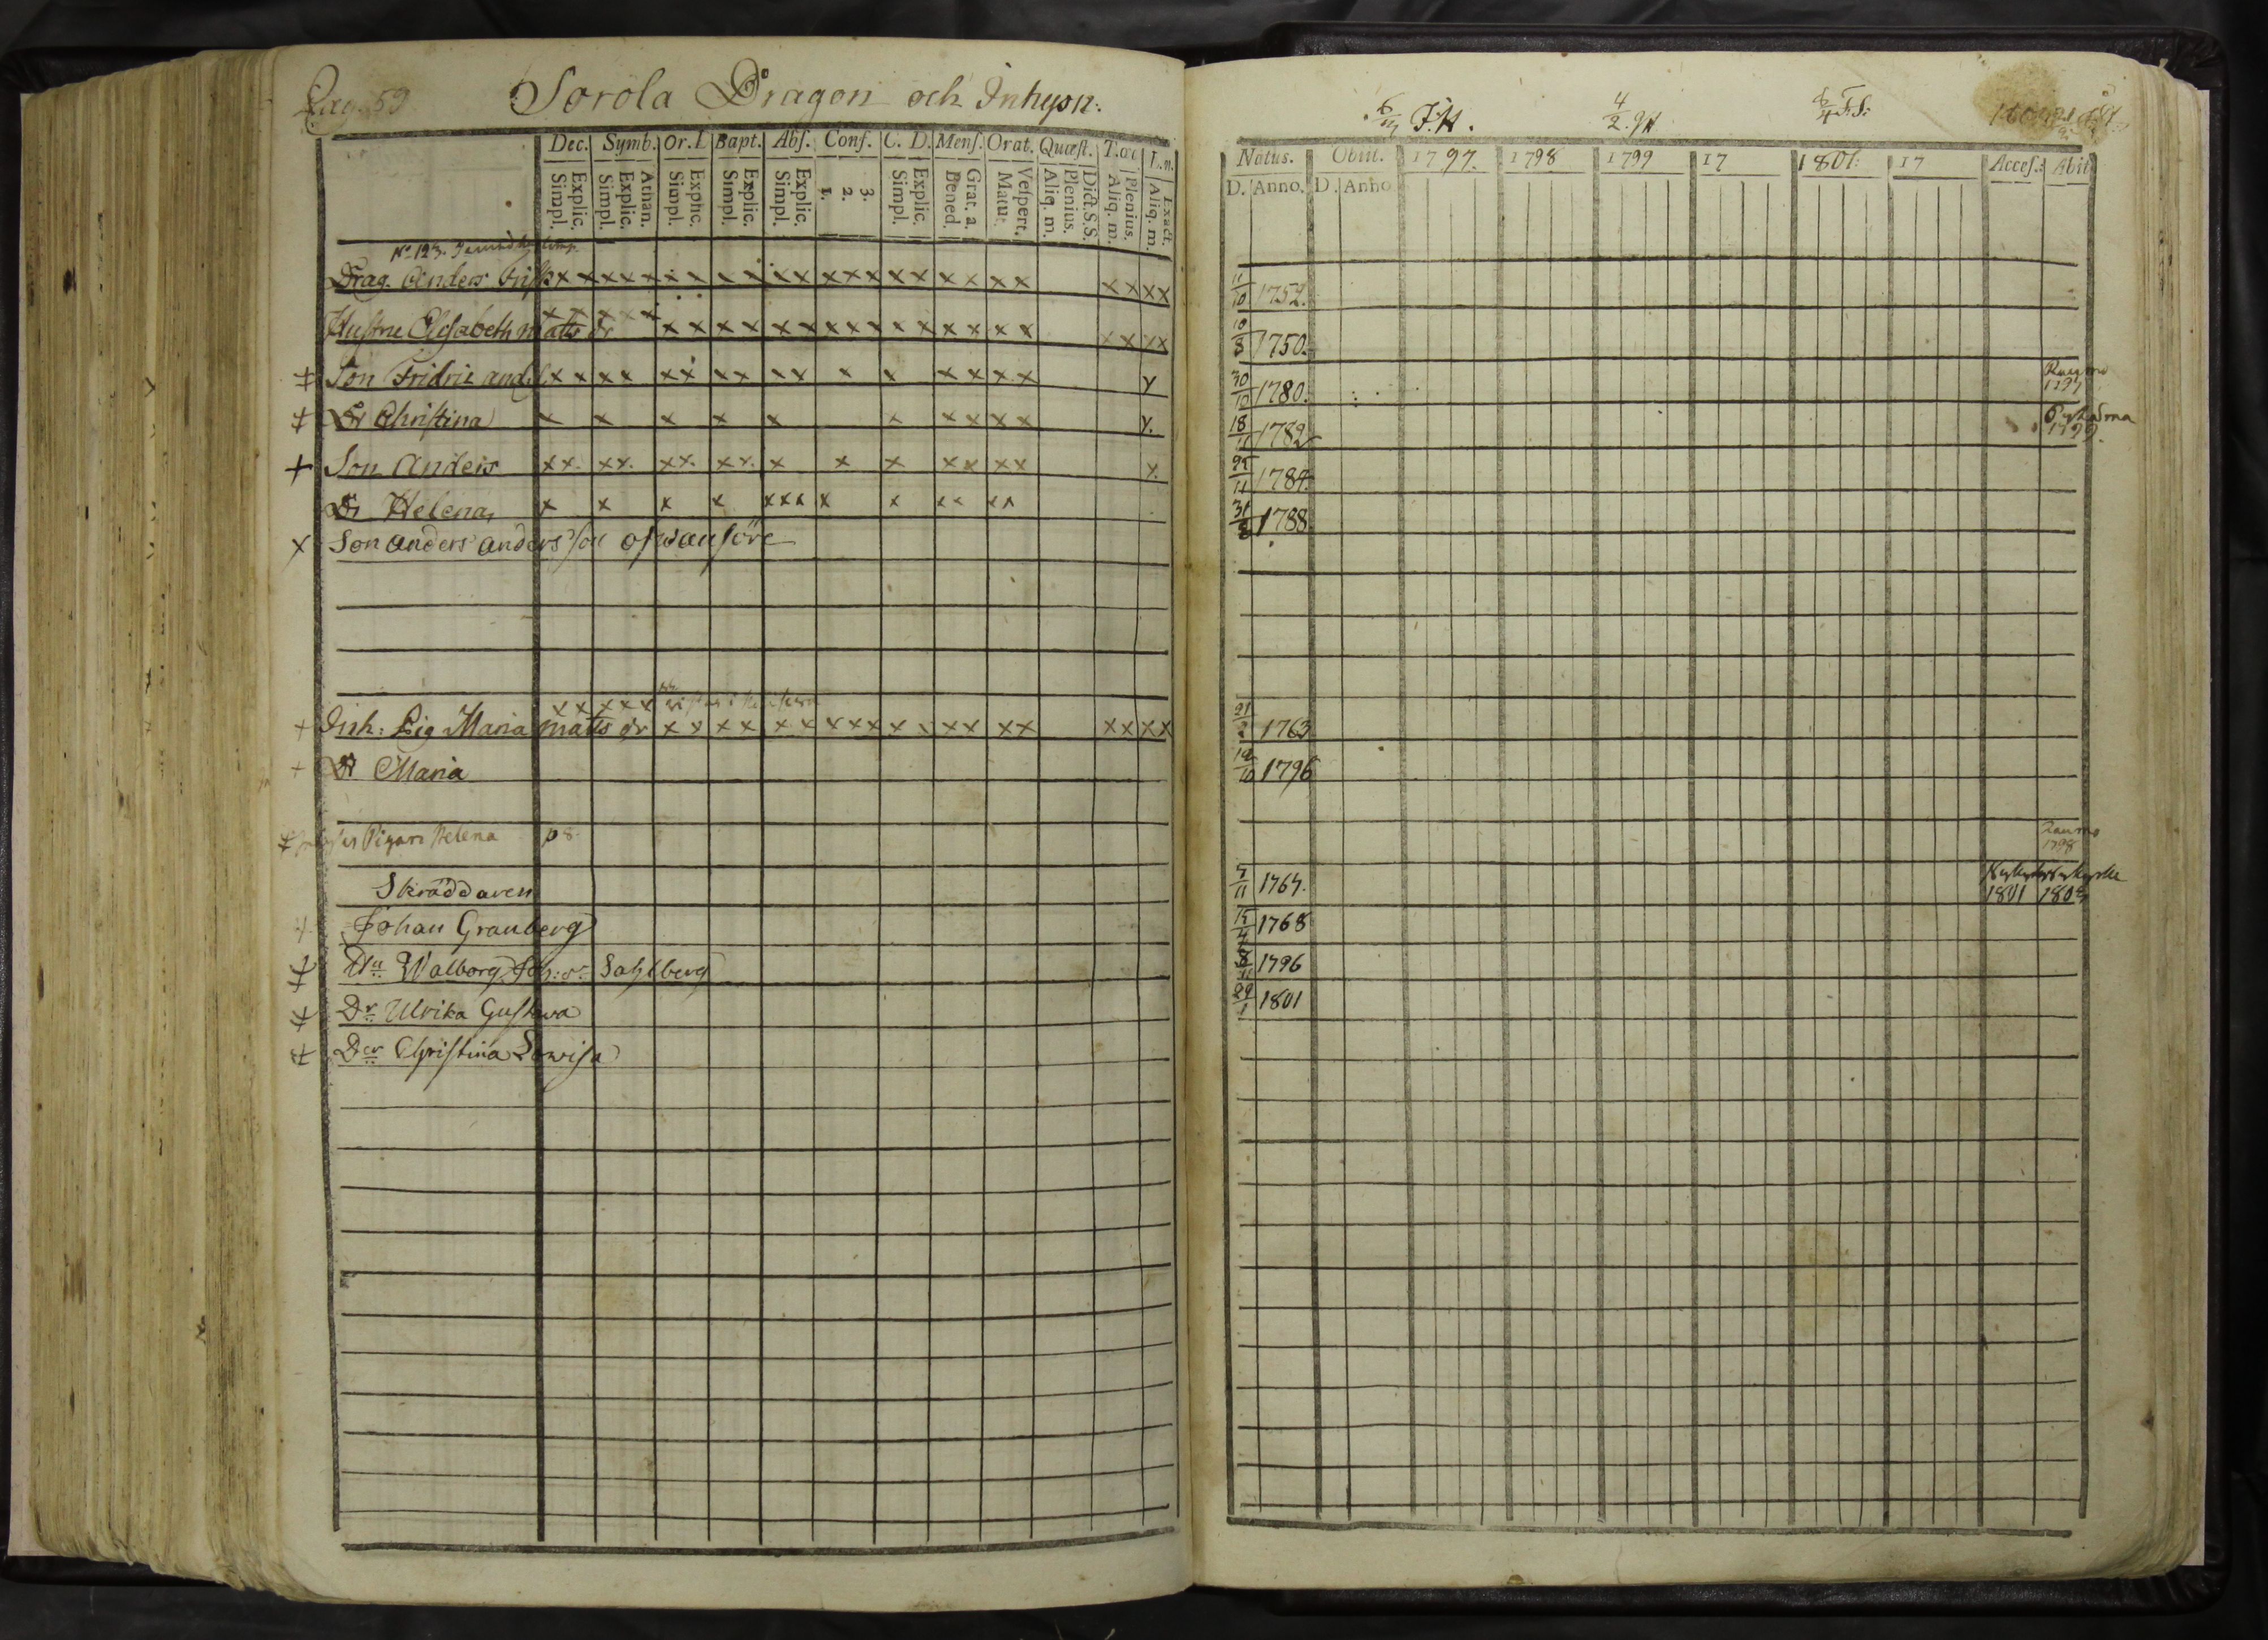 Pag. 59 Sorola Dragon och Inhysn:
Dec. Symb. Or. D Bapt. Abs. Conf. C. D. Mens. Orat. Quæst. T.œc L.n.
Explic. Simpl. Athan. Explic. Simpl. Explic. Simpl. Explic. Simpl. Explic. Simpl. 3. 2. 1. Explic. Simpl. Grat. a. Bened. Vespert. Matut. Dict. S.S. Plenius. Aliq. m. Plenius. Aliq. m. Exact. Aliq. m.
No 123.
Drag. Anders Frisk x x x x x x x x x x x x x x x x x x x x x x x x x
x x x x x
Hustru Elisabeth matts dr x x x x x x x x x x x x x x x x x x x x
‡ Son Fridric and.s. x x x x x x x x x x x x x x x x y
‡ Dr Christina x x x x x x x x x x y.
+ Son Anders xx. xx. xx. xx. x x x x x x x x.
Dr Helena x x x x x x x x x x x x x
x Son anders anders son ofwanföre
x x x x x
+ Inh: Pig Maria matts dr x x x x x x x x x x x x x x x x x x x
+ Dr Maria
Pigan Helena 98.
Skräddaren
Johan Granberg
‡ Hu Walborg Joh: dr Sahlberg
‡ Dr Ulrika Gustava
‡ Der Christina Lowisa
6/11 J.H. 4/2. GH F.S:
Natus. Obiit. 1797. 1798 1799 17 1801: 17 Acces.: Abiit
D. Anno. D. Anno
11/10 1752.
10/3 1750.
30/10 1780. 1797
18/11 1782 Pyhäma 1799.
25/11 1784.
31/8 1788.
21/2 1763
19/10 1796
Raumo 1798
7/11 1767. Nykyrko Nykyrko
1801 1803
15/4 1768
8/11 1796
29/1 1801